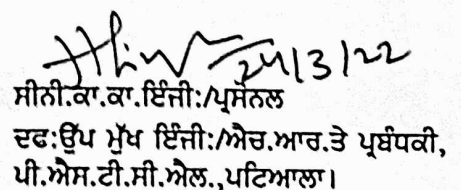 24/3/22
ਸੀਨੀ.ਕਾ.ਕਾ.ਇੰਜੀ:/ਪ੍ਰਸੋਨਲ
ਦਫ:ਉੱਪ ਮੁੱਖ ਇੰਜੀ:/ਐਚ.ਆਰ.ਤੇ ਪ੍ਰਬੰਧਕੀ,
ਪੀ.ਐਸ.ਟੀ.ਸੀ.ਐਲ.,ਪਟਿਆਲਾ।